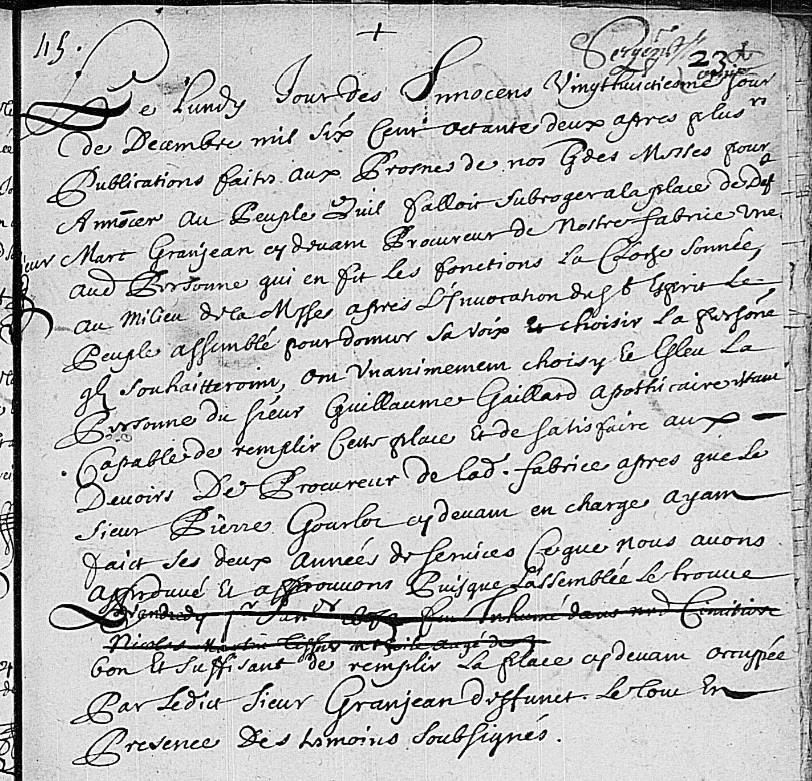 45.
+
23
Le Lundy Jour des Innocens Vingthuictiesme Jour
de Decembre mil six Cent octante deux apres plusrs
Publications faites aux Prosnes de nos Gdes Messes pour
Annoncer au Peuple Quil falloit subroger a la place de Deft
sieur Marc Granjean cy devant Procureur de Nostre fabrice une
aud Personne qui en fit les fonctions La Cloche sonnée,
au milieu de la Messe apres L'Invocation du St Esprit Le
Peuple assemblé pour donner sa voix Et choisir La personé
ql souhaitteroint, ont Unanimement choisy Et Esleu La
Personne du sieur Guillaume Gaillard apothicaire
Capable de remplir Cette place Et de satisfaire aux
Devoirs De Procureur de lad. fabrice apres que Le
Sieur Pierre Gourlot cy devant en charge ayant
faict ses deux Années de services Ce que nous avons
approuvé Et approuvons Puisque L'assemblée Le trouve
Vendredy fut Inhumé dans nre Cimitiere
Nicolas Martin agé de
bon Et suffisant de remplir La place cy devant occupée
Par Ledict Sieur Granjean deffunct. Le tout En
Presence Des tsmoins soubsignés.